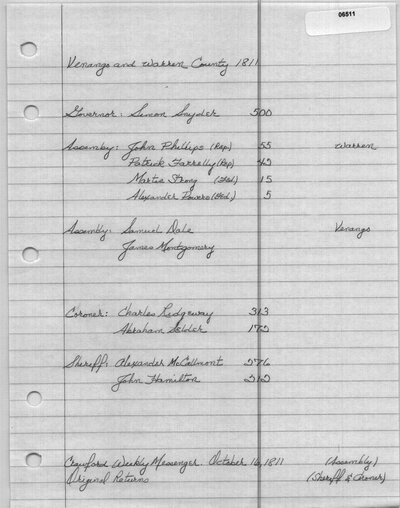 06511
Venango and Warren County 1811
Governor: Simon Snyder 500
Assembly: John Phillips (Rep) 55 Warren
Patrick Farrelly (Rep) 45
Martin Strong (Fed.) 15
Alexander Powers (Fed.) 5
Assembly: Samuel Dale Venango
James Montgomery
Coroner: Charles Ridgeway 313
Abraham Selder 172
Sheriff: Alexander McCalmont 276
John Hamilton 212
Crawford Weekly Messenger. October 16, 1811 (Assembly)
Original Returns (Sheriff & Coroner)